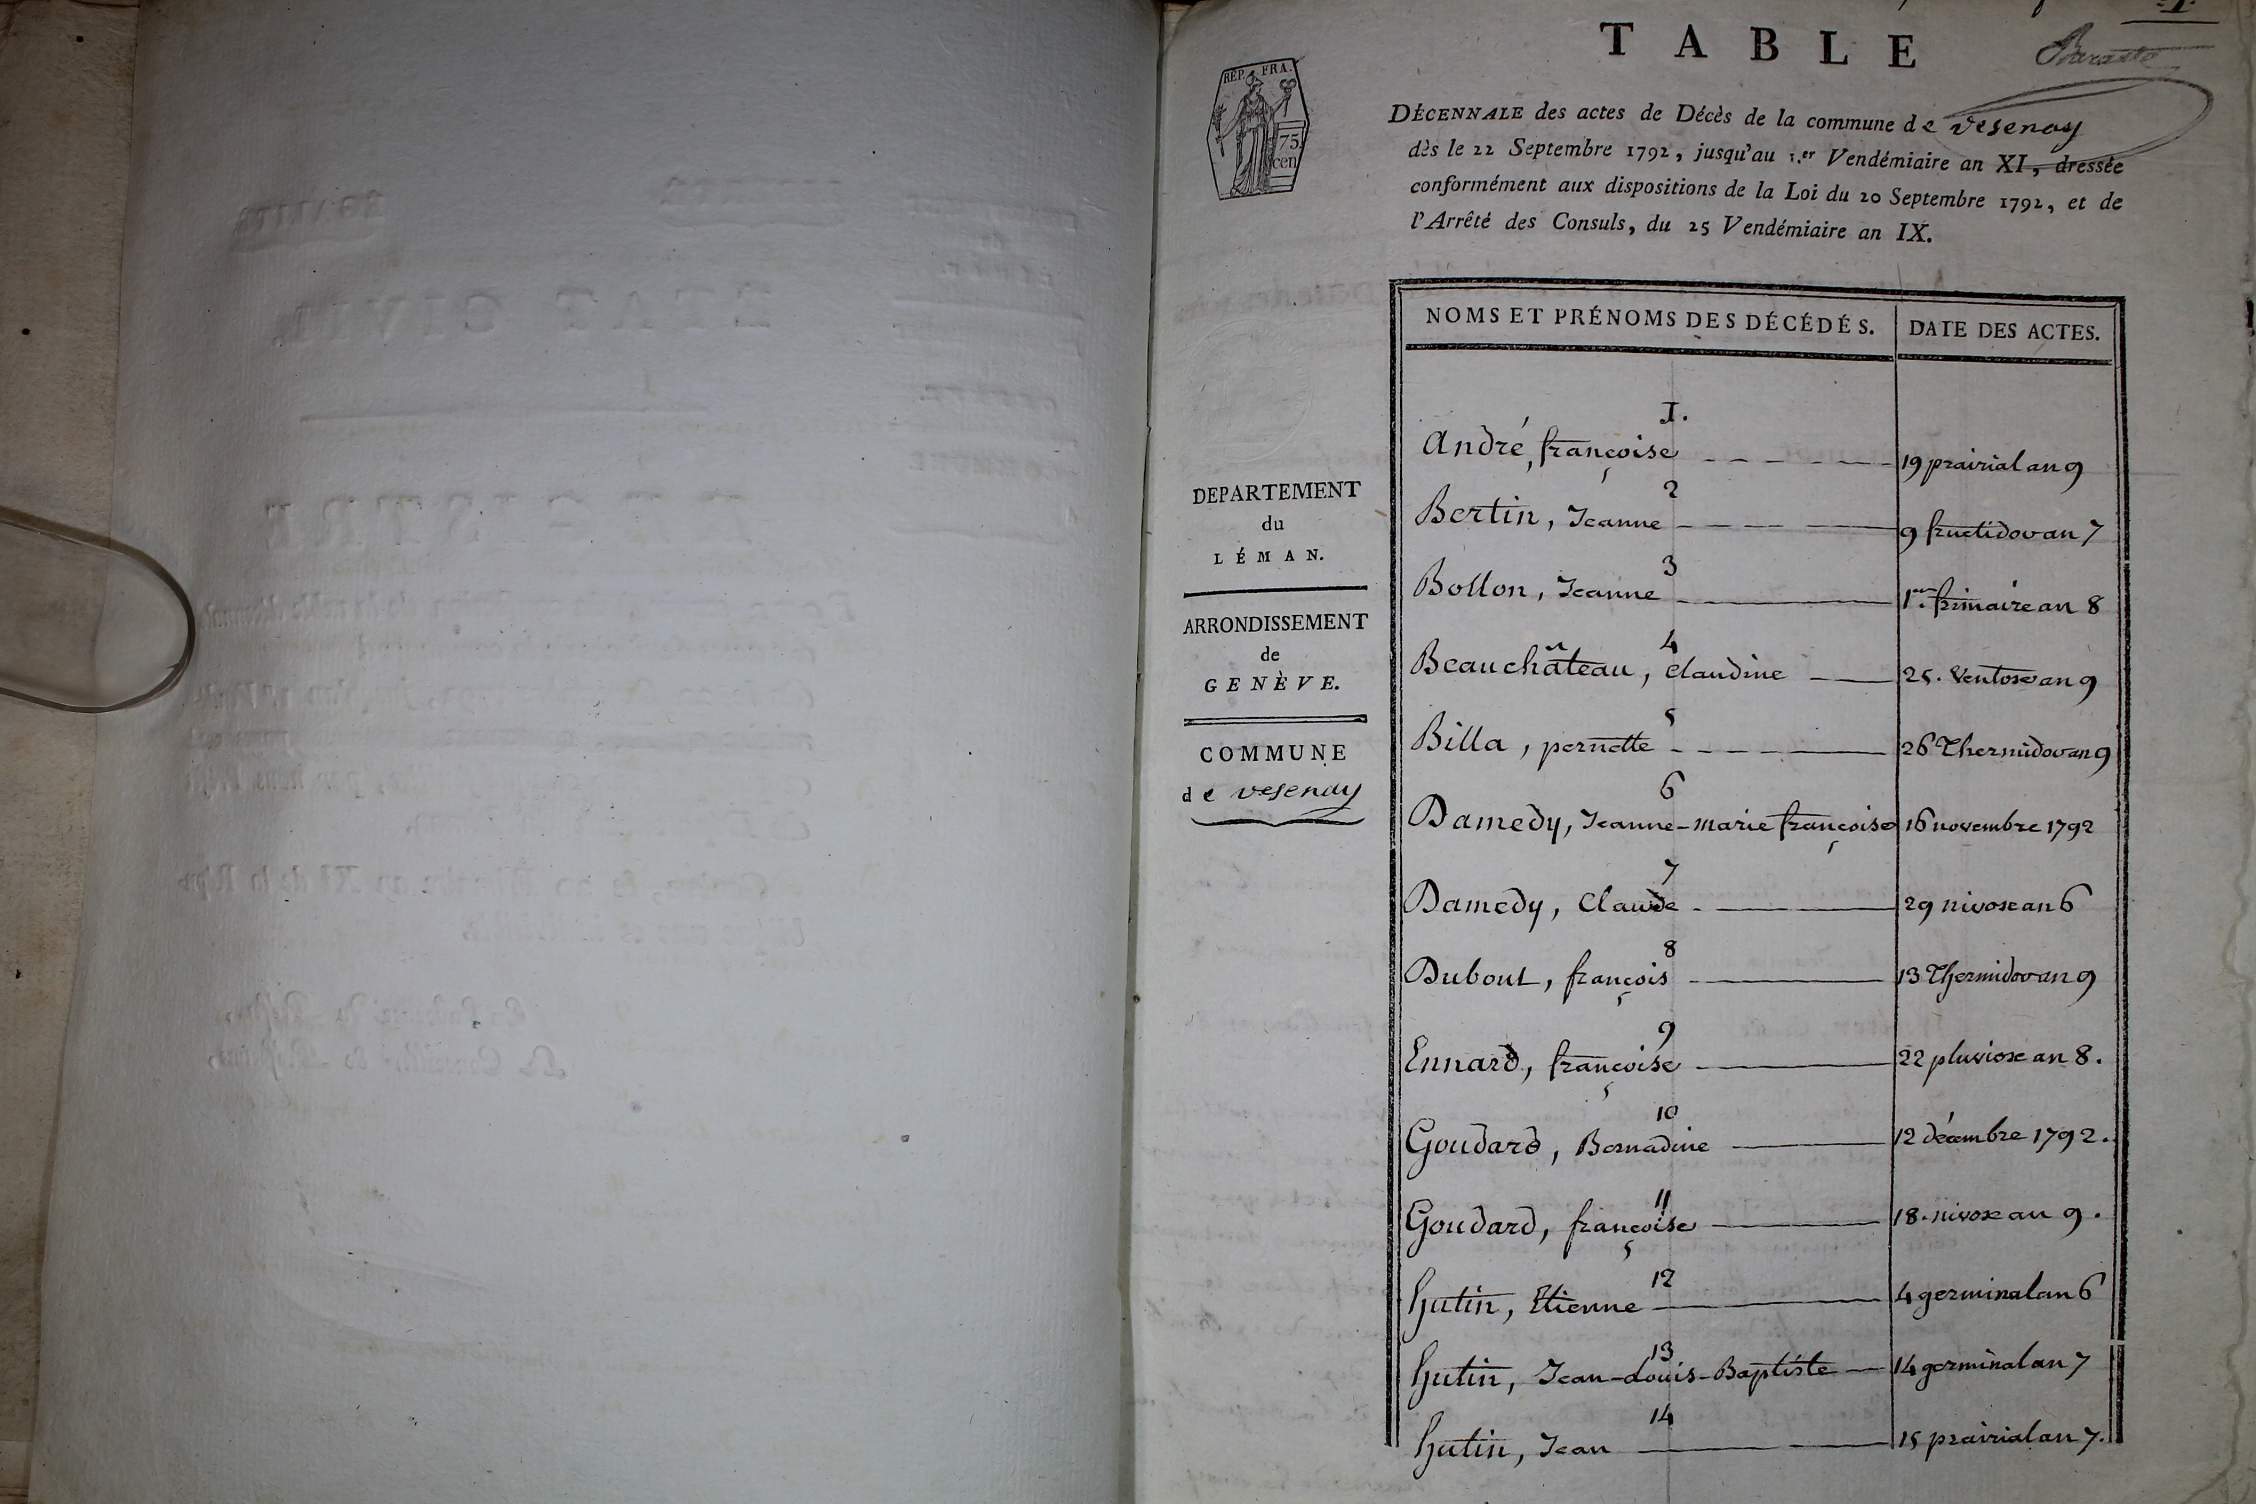 TABLE
REP. FRA.
75 cen
DÉCENNALE des actes de Décès de la commune de Vesenay
dès le 22 Septembre 1792, jusqu'au 1.er Vendémiaire an XI, dressée
conformément aux dispositions de la Loi du 20 Septembre 1792, et de
l'Arrêté des Consuls, du 25 Vendémiaire an IX.
DEPARTEMENT
du
LÉMAN.
ARRONDISSEMENT
de
GENÈVE.
COMMUNE
de vesenay
NOMS ET PRÉNOMS DES DÉCÉDÉS. DATE DES ACTES.
1.
André, françoise 19 prairial an 9
2
Bertin, Jeanne 9 fructidor an 7
3
Bollon, Jeanne 1er. frimaire an 8
4
Beauchâteau, claudine 25. Ventose an 9
5
Billa, pernette 26 Thermidor an 9
6
Damedy, Jeanne-marie françoise 16 novembre 1792
7
Damedy, Claude 29 nivose an 6
8
Dubout, françois 13 Thermidor an 9
9
Ennard, françoise 22 pluviose an 8.
10
Goudard, Bernadine 12 décembre 1792.
11
Goudard, françoise 18. nivose an 9.
12
hutin, Etienne 4 germinal an 6
13
hutin, Jean-Louis-Baptiste 14 germinal an 7
14
hutin, Jean 15 prairial an 7.